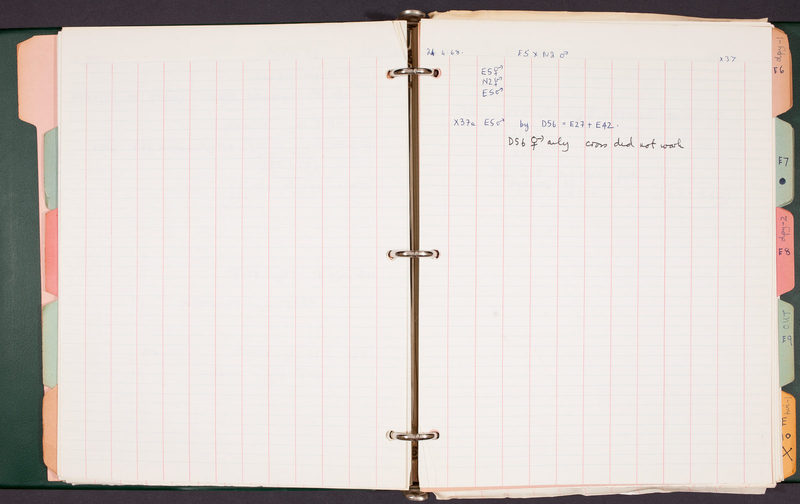 24.4.68. E5 x N2 ♂ x37
E5 ⚥
N2 ⚥
E5 ♂
X37a E5 ♂ by D56 = E27 + E42.
D56 ⚥ only cross did not work
dpy-1
E6
E7
dpy-2
E8
OUT
E9
E
10
X